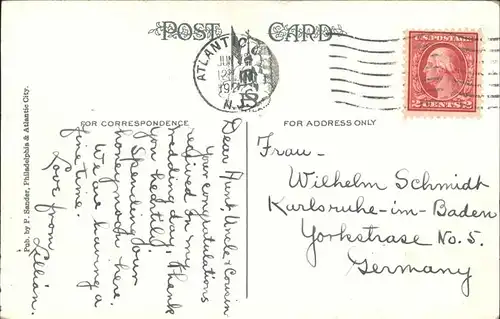 POST CARD
ATLANTIC C
JUN
12
192
N.J.
U.S. POSTAGE
2 CENTS 2
FOR CORRESPONDENCE
FOR ADDRESS ONLY
Pub. by P. Sander, Philadelphia & Atlantic City.
Dear Aunt, Uncle & Cousin
Your congratulations
received on my
wedding day. Thank
you heartily.
Spending our
honeymoon here.
We are having a
fine time.
Love from
Lillian.
Frau-
Wilhelm Schmidt
Karlsruhe-im-Baden
Yorkstrase No. 5.
Germany